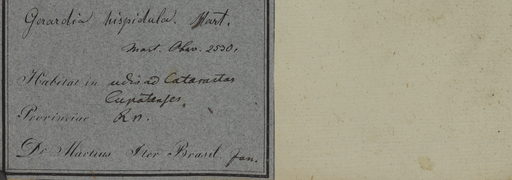 Gerardia hispidula. Mart.
Mart. Obsv. 2530.
Habitat in udis ad Cataractas
Cupatenses.
Provinciae R.n.
Dr Martius Iter Brasil. Jan.